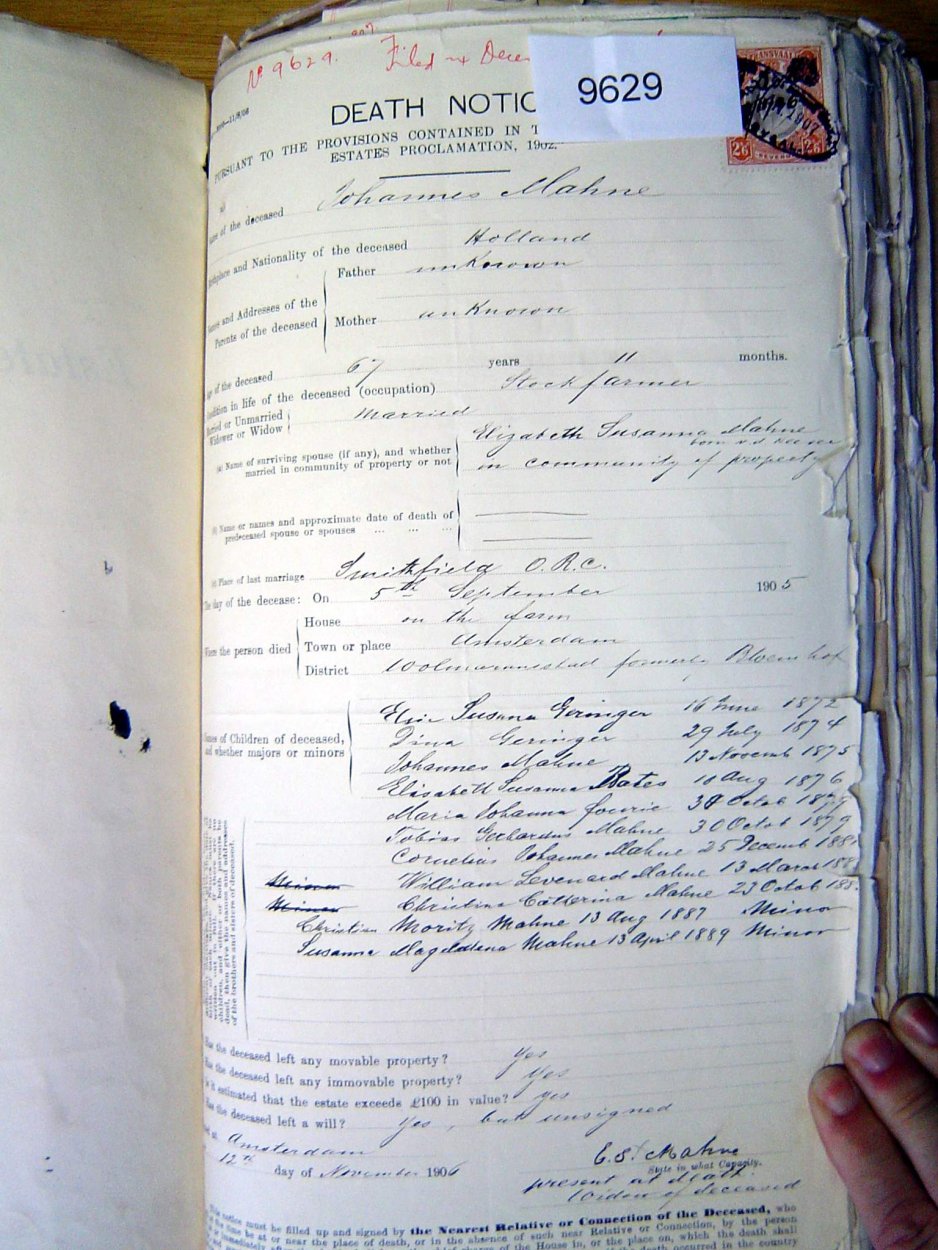 No 9629. Filed
9629
TRANSVAAL
1907
2/6 2/6
11/8/06
DEATH NOTIC
PURSUANT TO THE PROVISIONS CONTAINED IN T
ESTATES PROCLAMATION, 1902.
of the deceased Johannes Mahne
and Nationality of the deceased Holland
and Addresses of the Parents of the deceased
Father unknown
Mother unknown
of the deceased 67 years 11 months.
in life of the deceased (occupation) Stock farmer
or Unmarried
Widower or Widow Married
(a) Name of surviving spouse (if any), and whether
married in community of property or not
Elizabeth Susanna Mahne
born
in community of property
(b) Name or names and approximate date of death of
predeceased spouse or spouses ... ... ...
(c) Place of last marriage Smithfield O.R.C.
day of the decease: On 5th September 1905
House on the farm
Where the person died Town or place Amsterdam
District Wolmaransstad formerly Bloemhof
of Children of deceased,
and whether majors or minors
Elsie Susanna Geringer 16 June 1872
Dina Geringer 29 July 1874
Johannes Mahne 13 Novemb 1875
Elisabeth Susanna Bates 10 Aug 1876
Maria Johanna Fourie Octob
Tobias Gerhardus Mahne 30 Octob 1879
Cornelius Johannes Mahne 25 Decemb
Minor William Levenard Mahne 13 March
Minor Christina Catterina Mahne 23 Octob
Christian Moritz Mahne 13 Aug 1887 Minor
Susanna Magdalena Mahne 13 April 1889 Minor
dead, then give the names and addresses
of the brothers and sisters of deceased.
the deceased left any movable property? yes
the deceased left any immovable property? yes
it estimated that the estate exceeds £100 in value? yes
the deceased left a will? yes, but unsigned
at Amsterdam
12th day of November 1906
E. S. Mahne
State in what Capacity.
present at death
Widow of deceased
notice must be filled up and signed by the Nearest Relative or Connection of the Deceased, who
the time be at or near the place of death, or in the absence of such near Relative or Connection, by the person
of the House in, or the place on, which the death shall
death occurred in the country